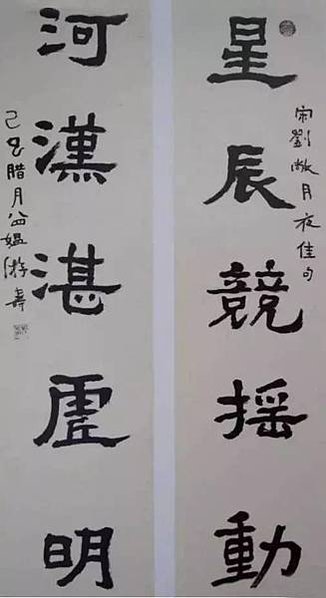 星辰競摇動
宋劉敞月夜佳句
河漢湛虛明
己巳腊月媪游壽